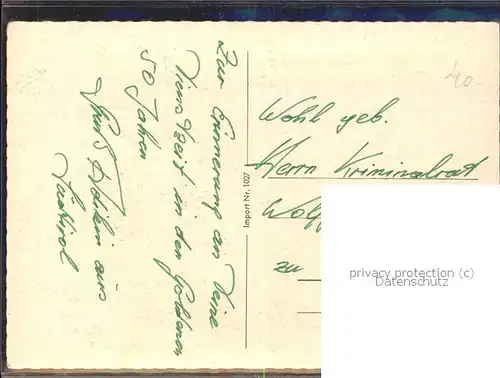 Zur Erinnerung an Deine
Dienstzeit in den Goldenen
50 Jahren
aus
Südtirol
Import Nr. 1027
40-
Wohl geb.
Herrn Kriminalrat
zu
privacy protection (c)
Datenschutz